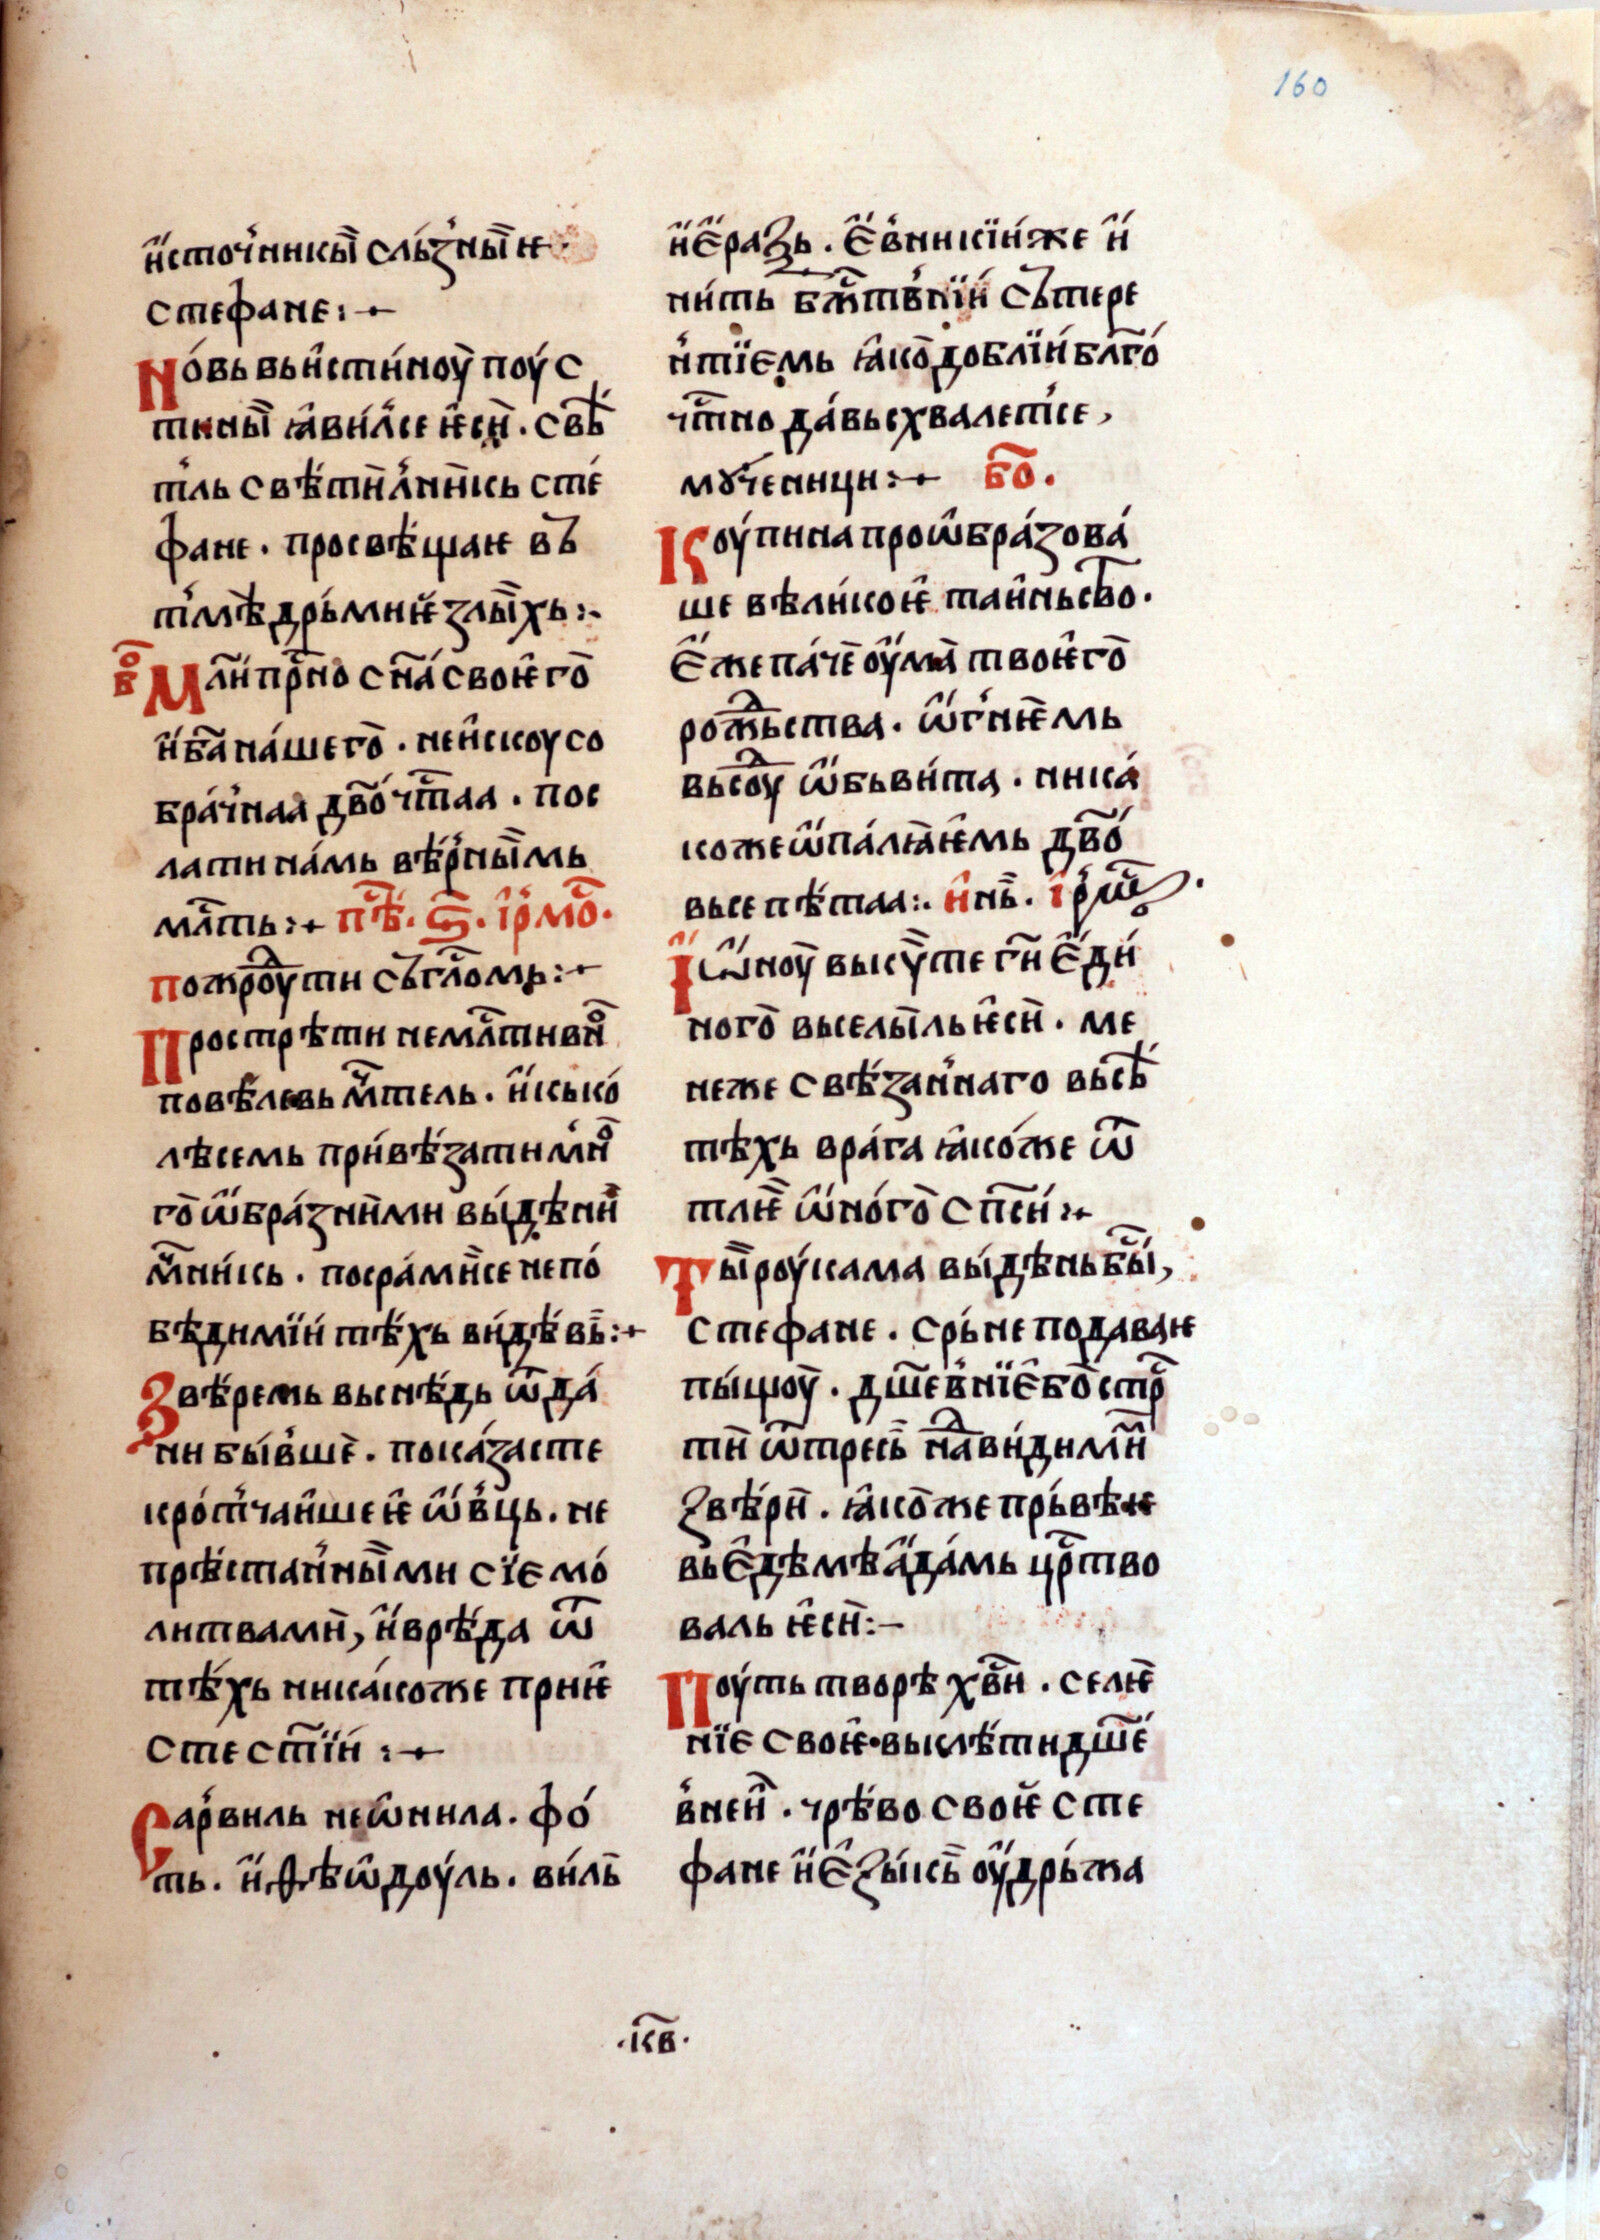 160
и҆сточ҆никы̀ сль́з҆ны̀ ѥ·
стефане:+
Но́вь вьи҆сти́ноу̀ поу́с
тины̀ ꙗ҆ви́л҆се ѥ҆сѝ. свѣ́
т҆ль свѣ́тѝл҆нѝкь сте́
фане. просвѣ́щаѥ въ
т҆мѣ дрь́мниѥ злы̀хь:~
бо҃ Мл҃и прⷭ҇но сн҃а своѥ҆го̀
и҆б҃а на́шего̀. неи҆скоусо
бра́ч҆наа дв҃о чⷭ҇таа. пос
лати на́мь вѣ́р҆ны̀мь
млⷭ҇ть:+ пѣⷭ҇. ѕ҃. і҆рмоⷭ҇.
Пожроуⷧ ти съглⷭ҇омь:+
Прострѣти немлⷭ҇тивно
повѣ́левь мⷱ҇тель. и҆ сько́
лѣсемь при́вѣ́зати м҆но
го̀ ѡ҆бра́знѝми вы́дѣнѝ
мⷱ҇ни́кь. посра́мѝсе непо́
бѣдимїи́ тѣ́хь ви́дѣ́вь̀:+
Звѣ́ремь вьснѣ́дь ѿда́
ни бы́в҆шѐ. пока́засте
кро́т҆чаи҆шеѥ҆ ѡ҆в҆ць. не
прѣ́стан҆ны̀ми сїе мо́
литвамѝ, и҆врѣ́да ѿ
тѣ́хь ника́коже приѥ҆
сте ст҃їи́:+
Сар҆виль неѡ҆нила. фо́
ть. и҆ ѳеѡ҆доу́ль. ви́ль̀
и҆е҆разь. е҆в҆никїи́же и҆
ни́ть бжⷭ҇тв҆нїи́ съ тере
н҆тїемь ꙗ҆ко̀ доблїи́ бл҃го́
чⷭ҇тно да́ вьсхвалет҆се,
мꙋ́ченици:+ бо҃.
Коу́пина проѡ҆бра́зова́
ше вѣли́коѥ҆ таи҆ньство.
е҆же па́чѐ оу҆ма̀ твоѥ҆го̀
рожⷣьства. ѡ҆г҆нѥ̀мь
вьсоуⷣ ѡ҆бьви́та. ника́
коже ѡ҆па́лꙗ҆ѥ҆мь дв҃о́
высепѣ́таа:. и҆ нь̀. і҆рмоⷭ҇.
І҆ѡ҆ноу̀ вькꙋ̀пе гⷭ҇и е҆ди́
ного̀ вьселы̀ль ѥ҆сѝ. ме
неже свѣ́зан҆наго вьсѣ́
тѣхь вра́га ꙗ҆ко́же ѿ
тлѥ̀ ѡ҆но́го̀ сп҃си́:+
Ты̀ роу́кама вы́дѣнь бы́ⷭ҇,
стефане. срь́не подаваѥ
пы́щоу̀. дш҃ев҆нїе҆ бо̀ стрⷭ҇
тѝ ѿтрес҆ь наⷣви́димѝи
звѣ́рѝ. ꙗ҆ко̀же прь́вѣѥ
вье҆дѣмѣ а҆да́мь црⷭ҇тво
валь ѥ҆сѝ:~
Поу́ть творѣ хв҃и. селѥ̀
нїе своѥ҆·вьслѣ́ти дш҃е́
в҆неи҆. чрѣ́во своѥ҆ сте
фане и҆ е҆зы́кь̀ оу҆дрь́жа
·к҃в·